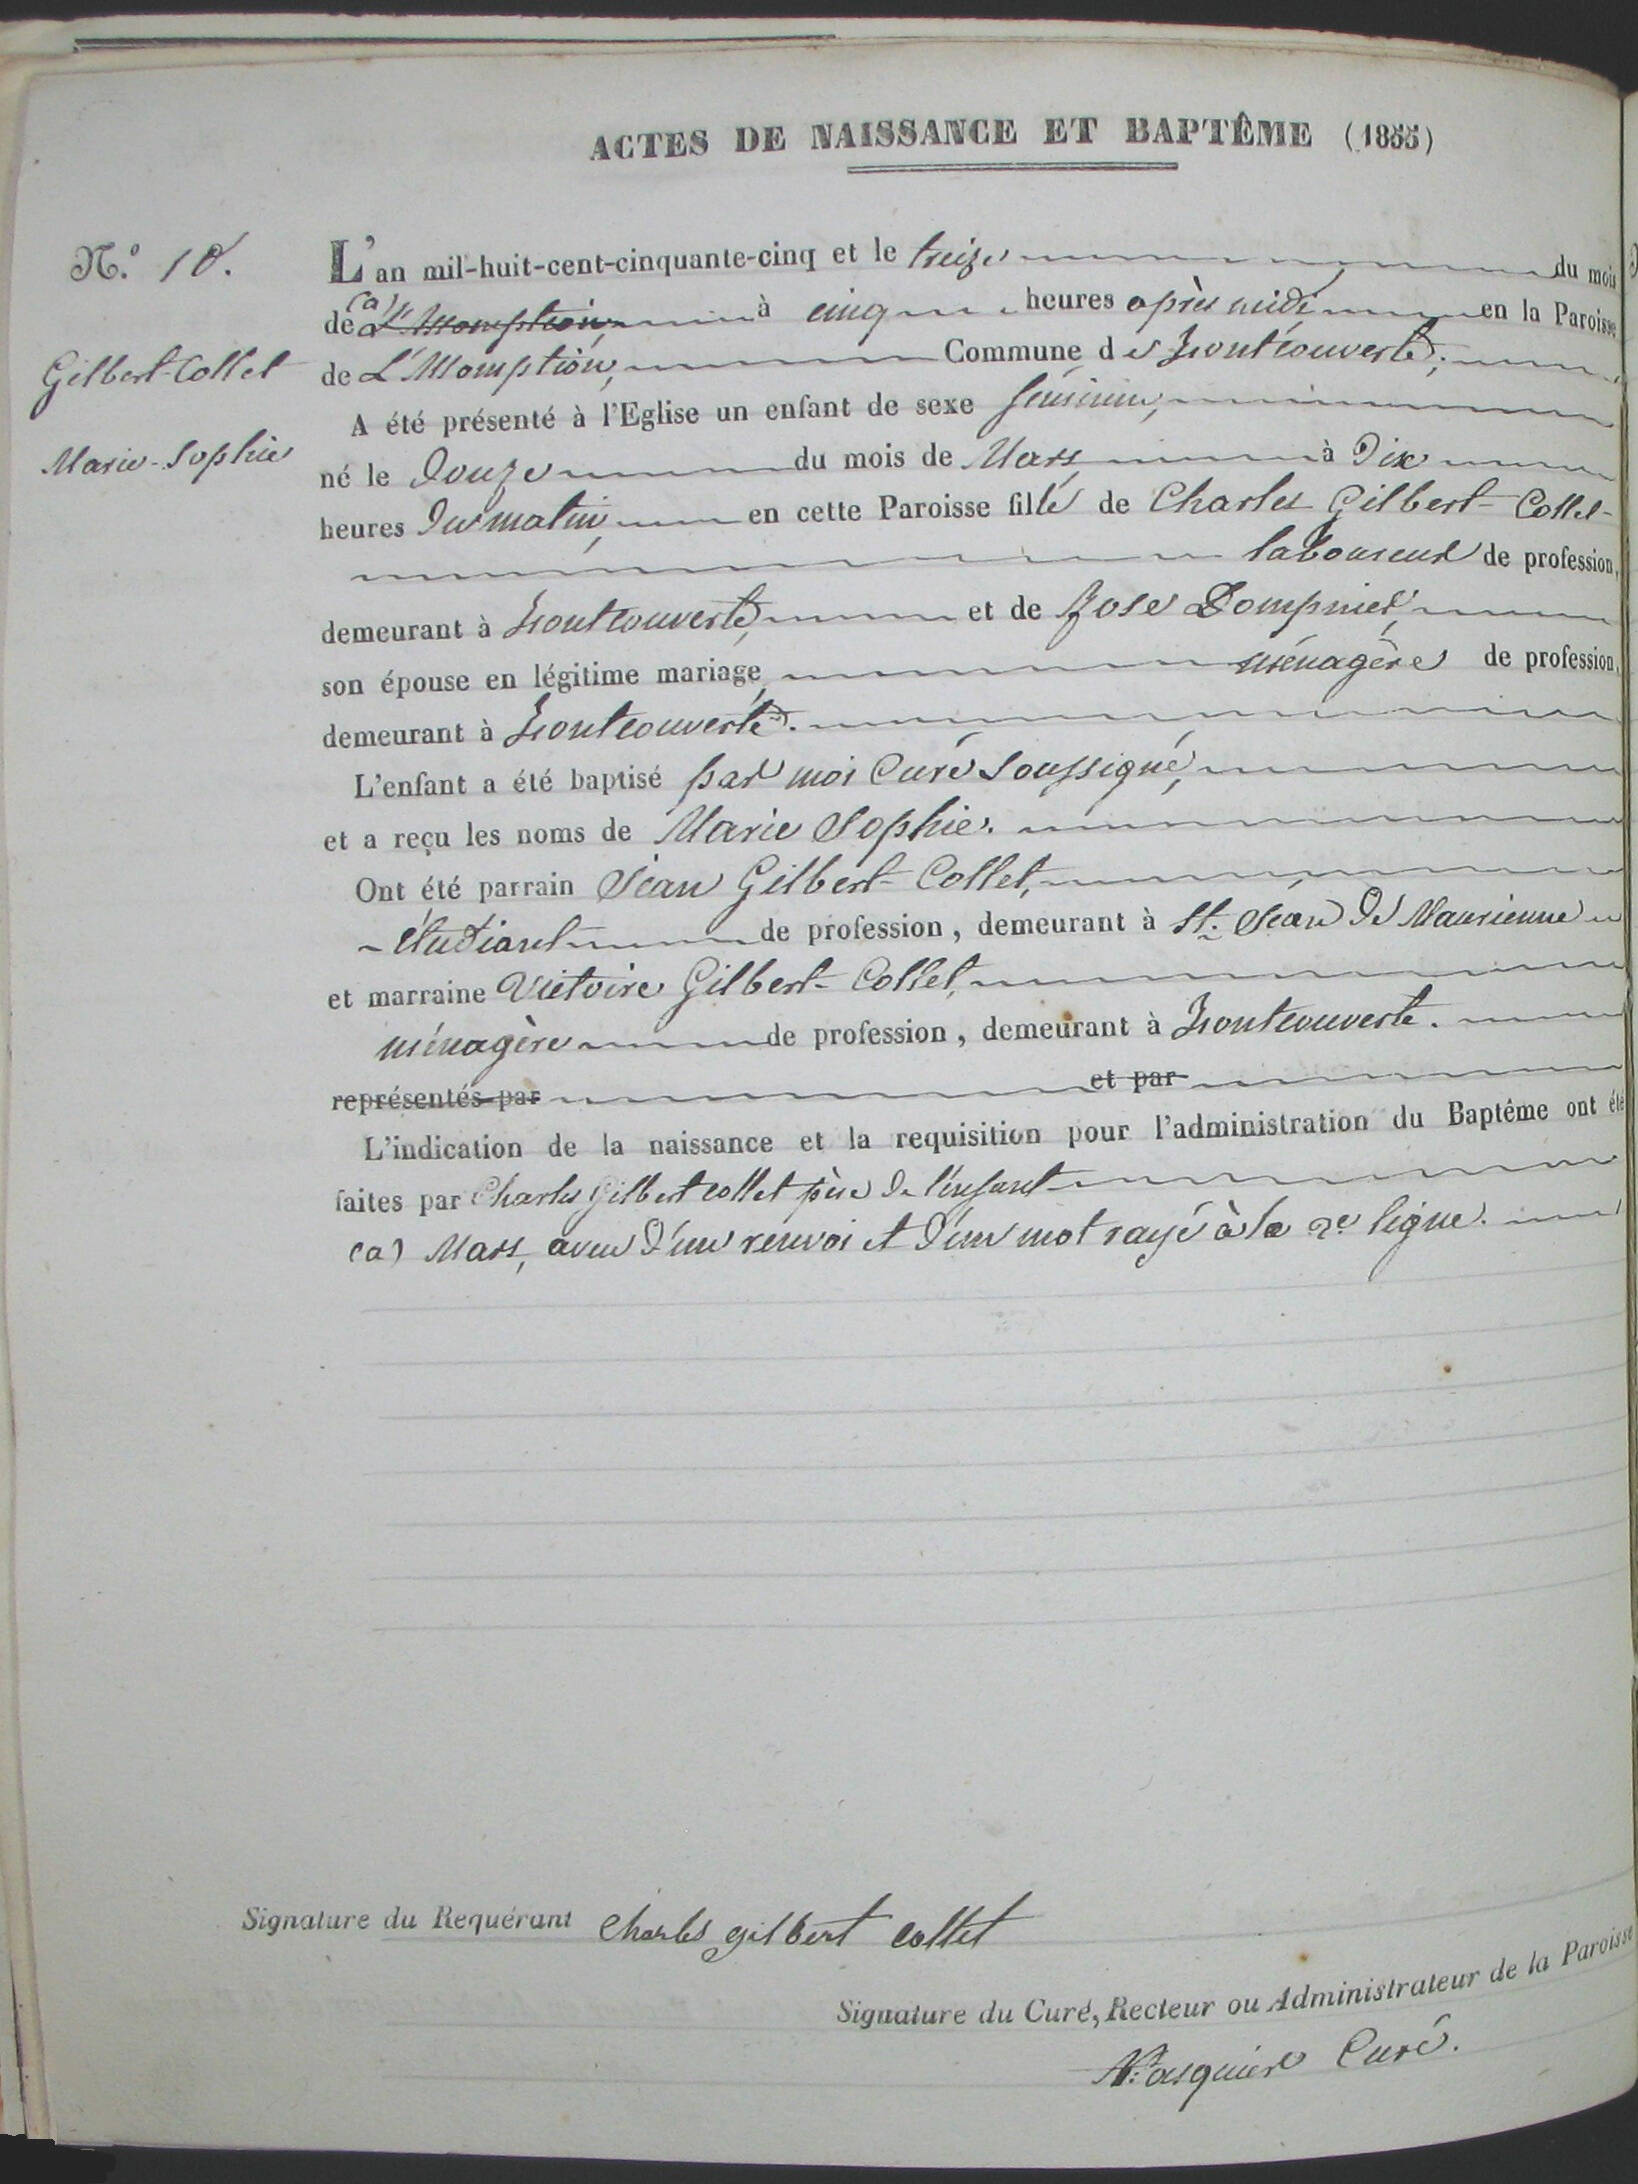 ACTES DE NAISSANCE ET BAPTÊME (1855)
N.º 10.
Gilbert-Collet
Marie-Sophie
L'an mil-huit-cent-cinquante-cinq et le treize du mois
de (a) L'Assomption, à cinq heures après midi en la Paroisse
de L'Assomption, Commune de Fontcouverte;
A été présenté à l'Eglise un enfant de sexe féminin,
né le Douze du mois de Mars à Dix
heures Du matin, en cette Paroisse fille de Charles Gilbert-Collet-
laboureur de profession,
demeurant à Fontcouverte, et de Rose Dompnier,
son épouse en légitime mariage, ménagère de profession,
demeurant à Fontcouverte.
L'enfant a été baptisé par moi Curé Soussigné,
et a reçu les noms de Marie Sophie.
Ont été parrain Jean Gilbert-Collet,
étudiant de profession, demeurant à St. Jean De Maurienne
et marraine Victoire Gilbert-Collet,
ménagère de profession, demeurant à Fontcouverte.
représentés par et par
L'indication de la naissance et la requisition pour l'administration du Baptême ont été
faites par Charles Gilbert collet père De l'enfant
(a) Mars, avec D'un renvoi et D'un mot rayé à la 2e ligne.
Signature du Requérant Charles gilbert collet
Signature du Curé, Recteur ou Administrateur de la Paroisse
Pasquier Curé.